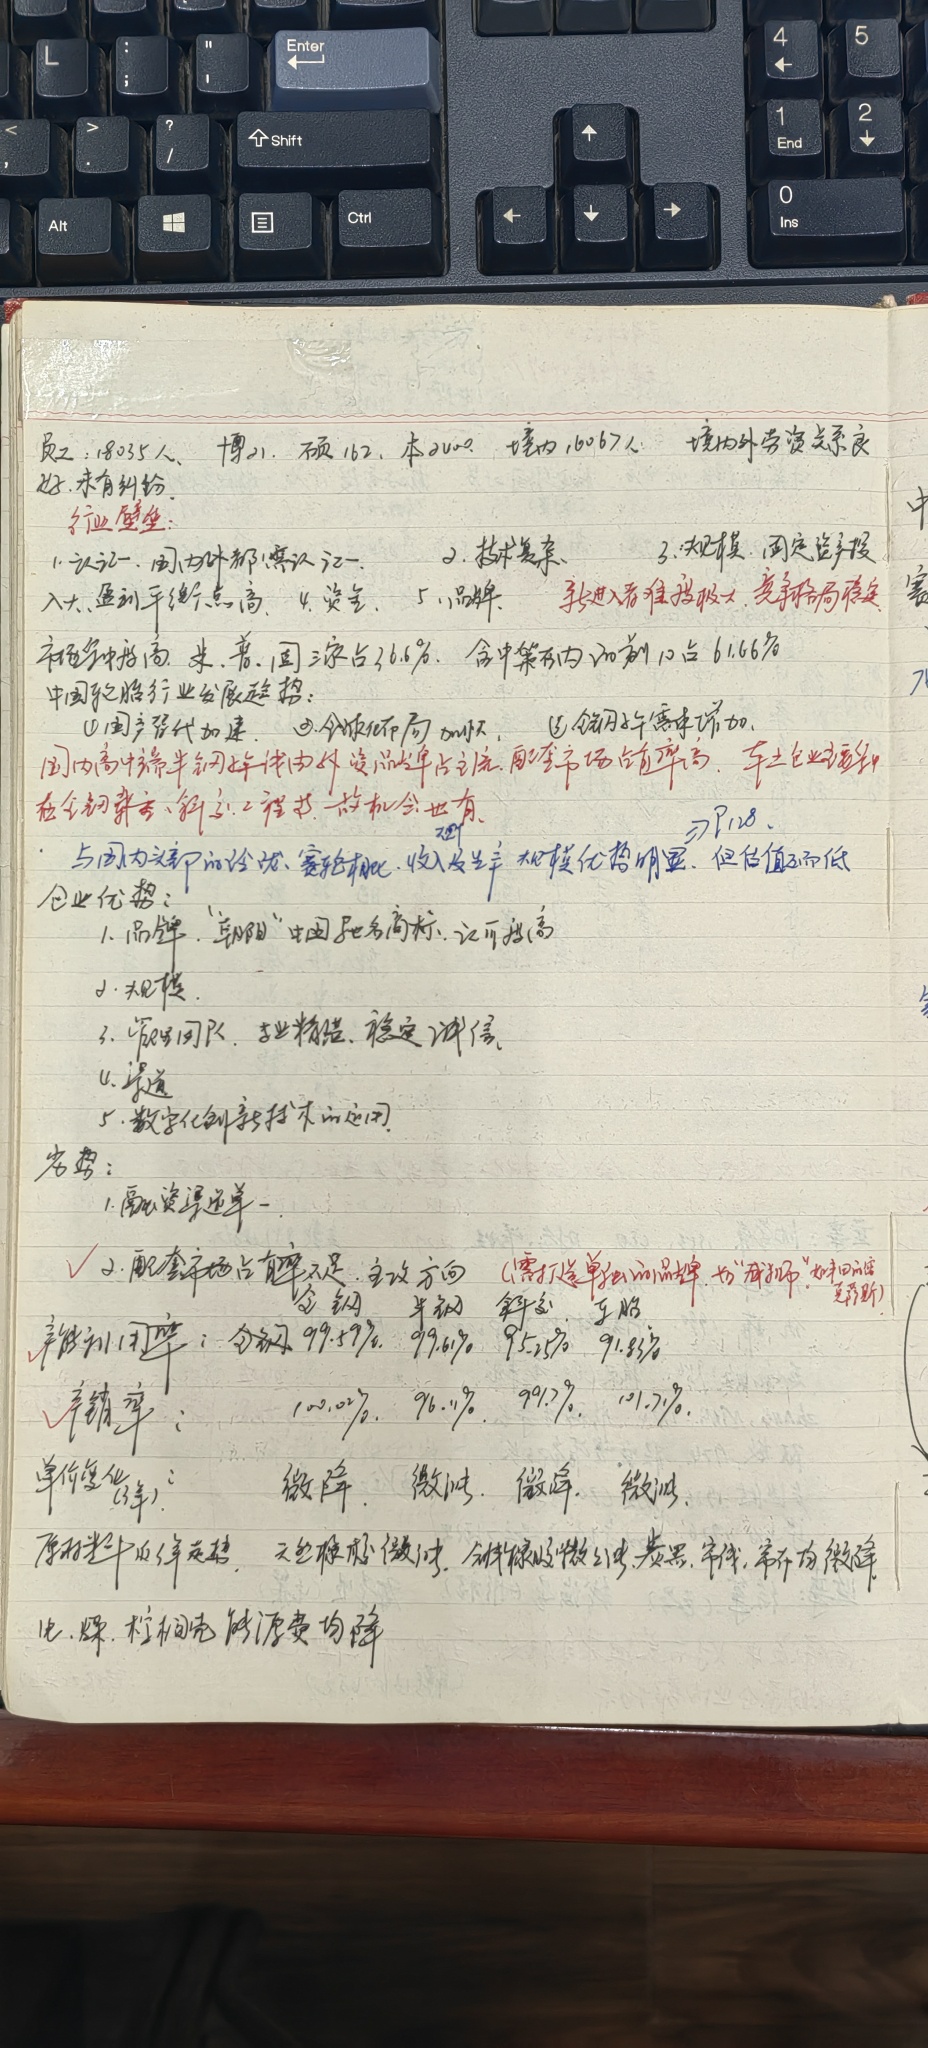 L
:
;
"
'
Enter
4
5
<
,
>
.
?
/
Shift
1
End
2
Alt
Ctrl
0
Ins
员工:18035人、 博21. 硕162. 本2400. 境内16067人. 境内外劳资关系良
好.未有纠纷.
行业壁垒:
1.认证.国内外都需认证. 2.技术复杂. 3.规模.固定资产投
入大、盈利平衡点高. 4.资金. 5.品牌. 新进入者难度极大.竞争格局稳定
市场集中度高.米、普、固三家占36.6%. 含中策在内的前10占61.66%
中国轮胎行业发展趋势:
①国产替代加速. ②全球化布局加快. ③全钢胎需求增加.
国内高中端半钢胎领域由外资品牌占主流.配套市场占有率高. 本土企业主要集中
在全钢载重、斜交、工程其 故机会也有.
与国内头部的玲珑、赛轮相比.收入及生产规模优势明显.但估值反而低
→P128.
企业优势:
1.品牌."朝阳"中国驰名商标.认可度高
2.规模.
3.管理团队.专业精悍、稳定诚信.
4.渠道
5.数字化创新技术的运用.
劣势:
1.融资渠道单一.
2.配套市场占有率不足.主攻方向 (需打造单独的品牌.如"威狮" 如丰田的雷克萨斯)
全钢 半钢 斜交. 车胎
产能利用率: 全钢 99.59%. 99.61% 95.25% 91.83%
产销率: 100.02%. 96.11%. 99.7%. 101.71%.
单价变化(3年): 微降. 微涨. 微降. 微涨.
原材料价3年走势 天然橡胶微涨.合成橡胶微涨.炭黑.帘线.帘布均微降.
电.煤.柠相壳能源费均降